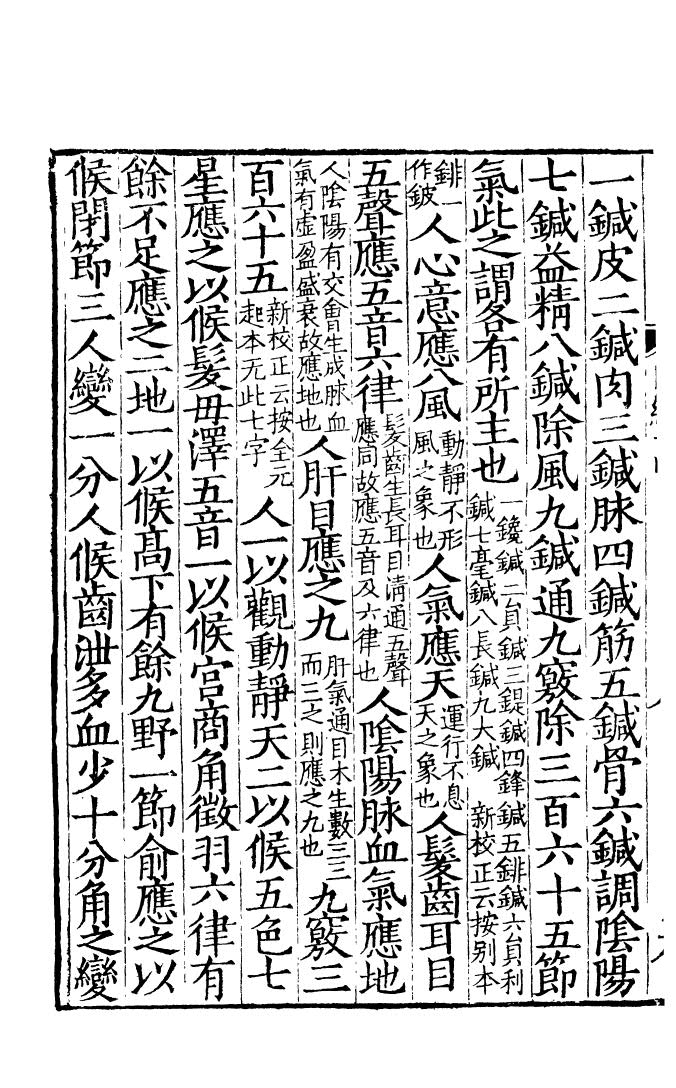 一鍼皮二鍼肉三鍼脉四鍼筋五鍼骨六鍼調陰陽
七鍼益精八鍼除風九鍼通九竅除三百六十五節
氣此之謂各有所主也一鑱鍼二員鍼三鍉鍼四鋒鍼五鈹鍼六員利鍼七毫鍼八長鍼九大鍼 新校正云按别本
鈹一作鈹人心意應八風動靜不形風之象也人氣應天運行不息天之象也人髮齒耳目
五聲應五音六律髮齒生長耳目清通五聲應同故應五音及六律也人陰陽脉血氣應地
人陰陽有交會生成脉血氣有虛盈盛衰故應地也人肝目應之九肝氣通目木生數三三而三之則應之九也九竅三
百六十五新校正云按全元起本无此七字人一以觀動靜天二以候五色七
星應之以候髮毋澤五音一以候宫商角徵羽六律有
餘不足應之二地一以候髙下有餘九野一節俞應之以
候閉節三人變一分人候齒泄多血少十分角之變